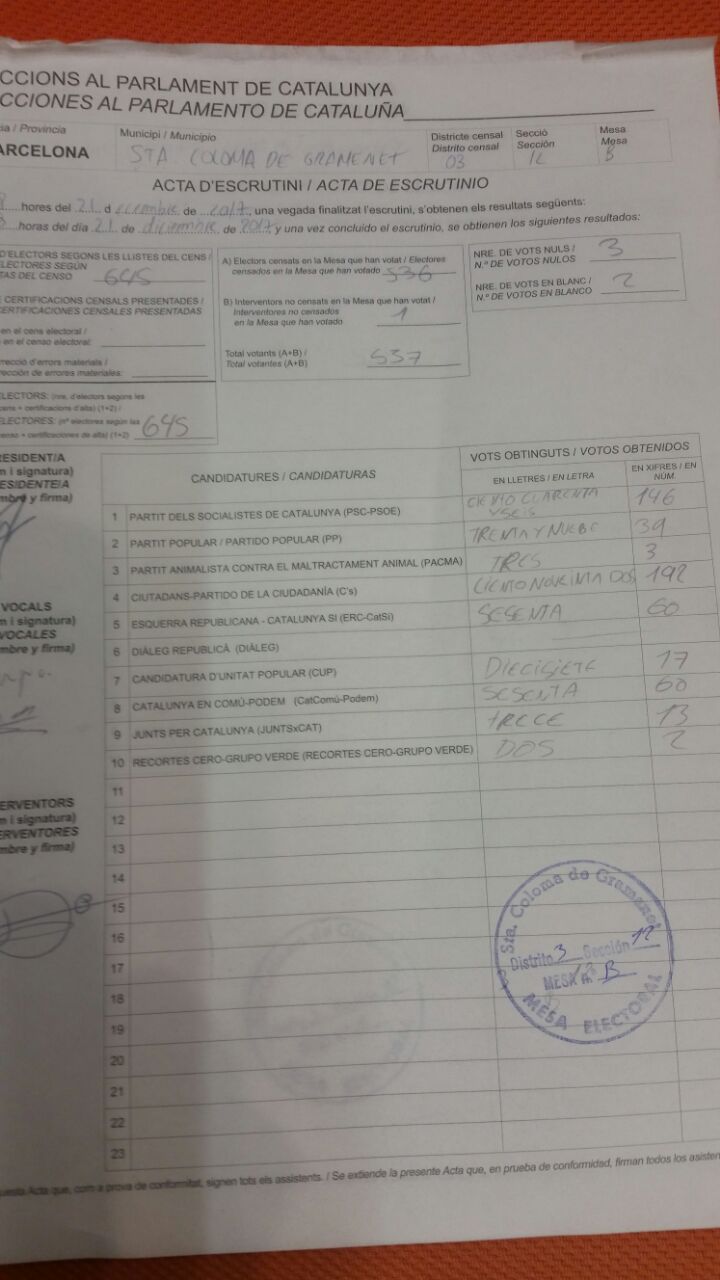 CCIONS AL PARLAMENT DE CATALUNYA
CCIONES AL PARLAMENTO DE CATALUÑA
/ Provincia
ARCELONA
Municipi / Municipio
STA. COLOMA DE GRAMENET
Districte censal
Distrito censal
03
Secció
Sección
12
Mesa
Mesa
B
ACTA D'ESCRUTINI / ACTA DE ESCRUTINIO
hores del 21 d de 2017, una vegada finalitzat l'escrutini, s'obtenen els resultats següents:
horas del día 21 de diciembre de 2017 y una vez concluido el escrutinio, se obtienen los siguientes resultados:
D'ELECTORS SEGONS LES LLISTES DEL CENS /
ELECTORES SEGÚN
TAS DEL CENSO 645
CERTIFICACIONS CENSALS PRESENTADES /
CERTIFICACIONES CENSALES PRESENTADAS
en el cens electoral /
en el censo electoral:
rrecció d'errors materials /
rección de errores materiales:
ELECTORS: (nre. d'electors segons les
cens + certificacions d'alta) (1+2) /
ELECTORES: (nº electores según las
censo + certificaciones de alta) (1+2) 645
A) Electors censats en la Mesa que han votat / Electores
censados en la Mesa que han votado 536
B) Interventors no censats en la Mesa que han votat /
Interventores no censados
en la Mesa que han votado 1
Total votants (A+B) /
Total votantes (A+B) 537
NRE. DE VOTS NULS /
N.º DE VOTOS NULOS 3
NRE. DE VOTS EN BLANC /
N.º DE VOTOS EN BLANCO 2
RESIDENT/A
m i signatura)
ESIDENTE/A
mbre y firma)
VOCALS
m i signatura)
VOCALES
mbre y firma)
ERVENTORS
m i signatura)
ERVENTORES
mbre y firma)
CANDIDATURES / CANDIDATURAS
VOTS OBTINGUTS / VOTOS OBTENIDOS
EN LLETRES / EN LETRA
EN XIFRES / EN
NÚM.
1 PARTIT DELS SOCIALISTES DE CATALUNYA (PSC-PSOE) CIENTO CUARENTA Y SEIS 146
2 PARTIT POPULAR / PARTIDO POPULAR (PP) TRENTA Y NUEBE 39
3 PARTIT ANIMALISTA CONTRA EL MALTRACTAMENT ANIMAL (PACMA) TRES 3
4 CIUTADANS-PARTIDO DE LA CIUDADANÍA (C's) CIENTO NOVEINTA DOS 192
5 ESQUERRA REPUBLICANA - CATALUNYA SI (ERC-CatSí) SESENTA 60
6 DIÀLEG REPUBLICÀ (DIÀLEG)
7 CANDIDATURA D'UNITAT POPULAR (CUP) DIECISIETE 17
8 CATALUNYA EN COMÚ-PODEM (CatComú-Podem) SESENTA 60
9 JUNTS PER CATALUNYA (JUNTSxCAT) TRECE 13
10 RECORTES CERO-GRUPO VERDE (RECORTES CERO-GRUPO VERDE) DOS 2
11
12
13
14
15
16
17
18
19
20
21
22
23
Sta. Coloma de Gramanet
Distrito 3 Sección 12
MESA B
MESA ELECTORAL
uesta Acta que, com a prova de conformitat, signen tots els assistents. / Se extiende la presente Acta que, en prueba de conformidad, firman todos los asisten